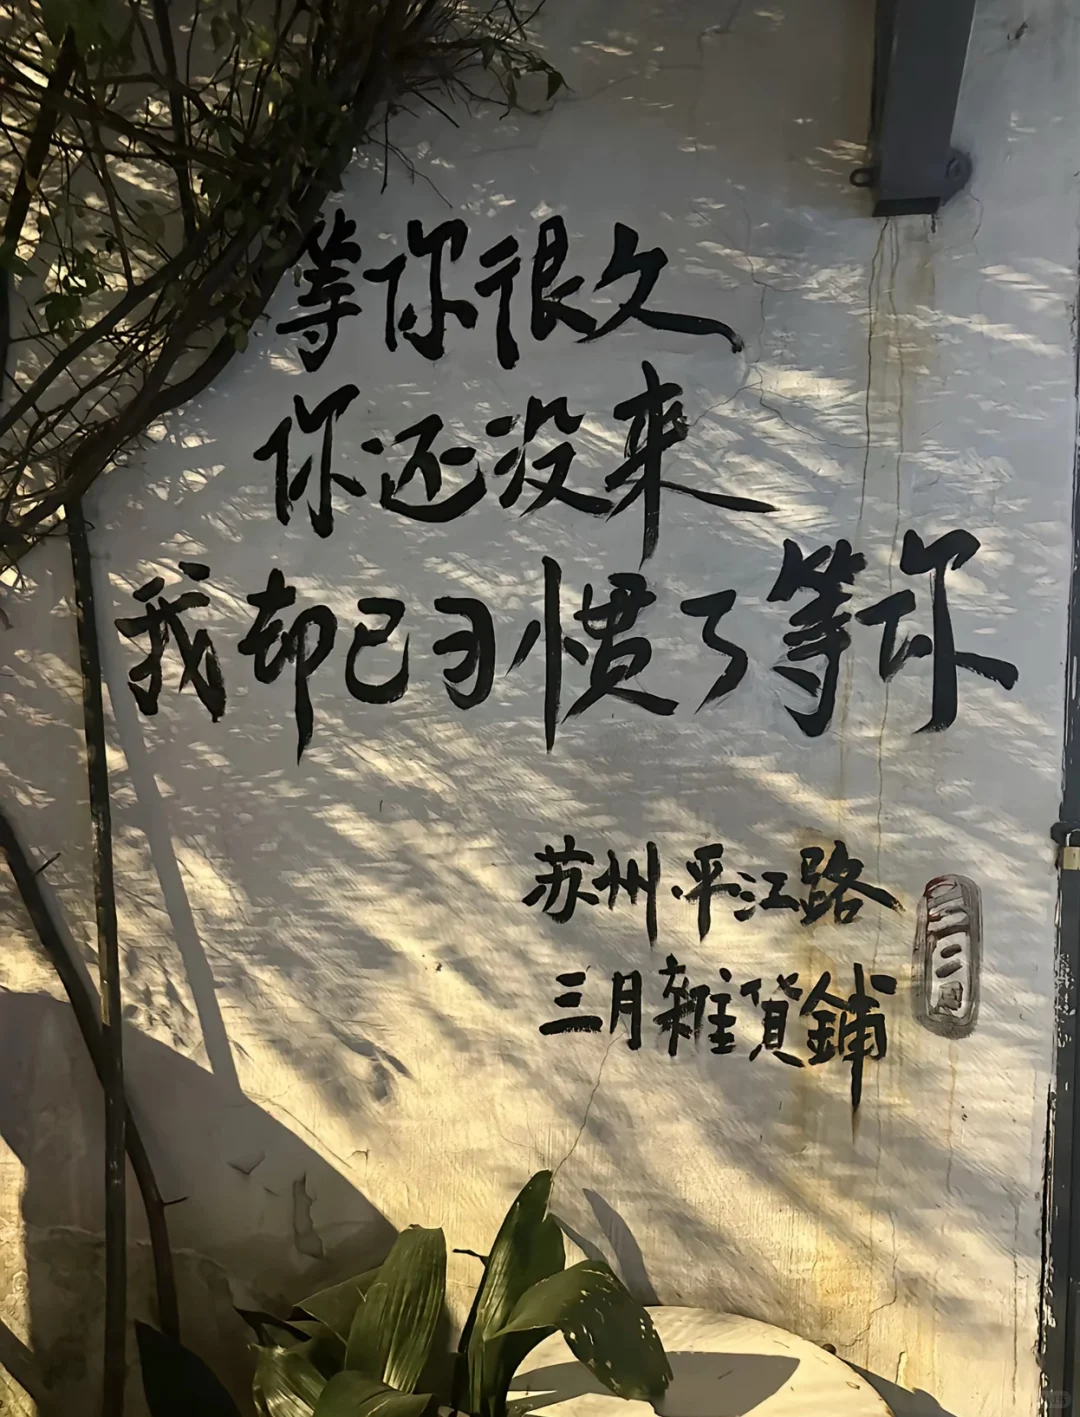 等你很久
你还没来
我却已习惯了等你
苏州平江路
三月雜貨鋪